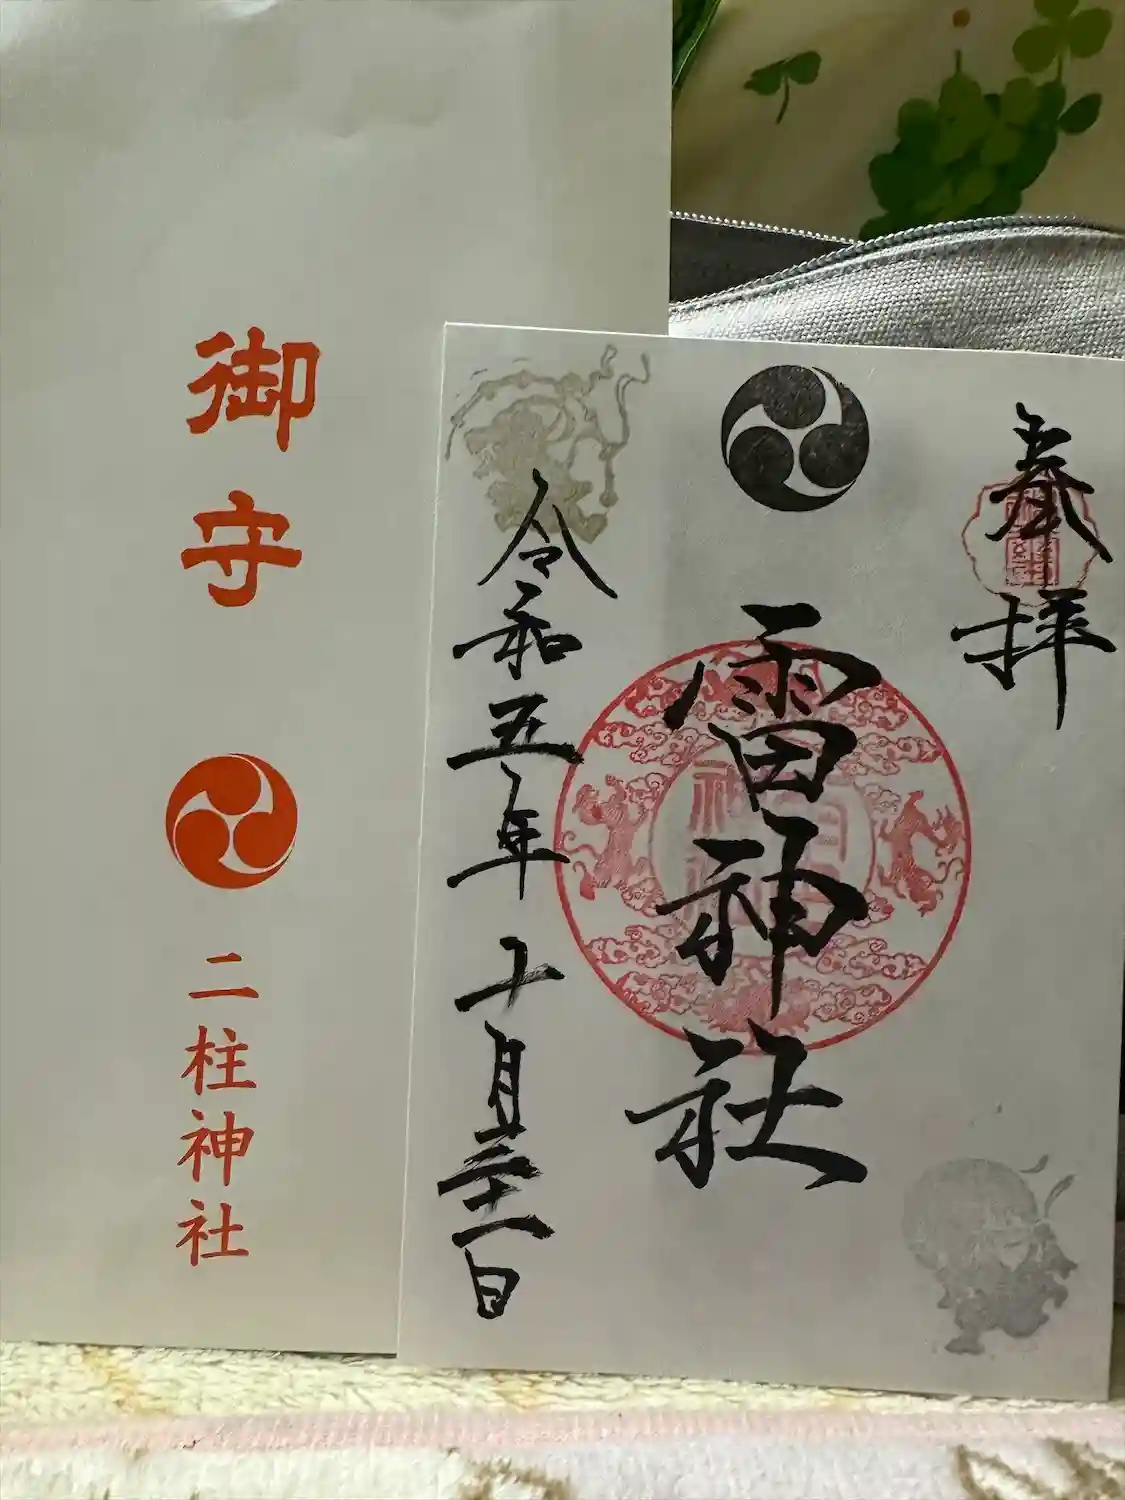 奉拝
雷神社
令和五年十月二十一日
御守
二柱神社